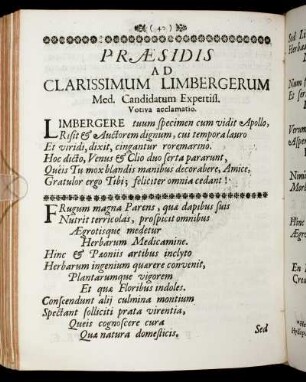 ( 40 )
PRÆSIDIS
AD
CLARISSIMUM LIMBERGERUM
Med. Candidatum Expertiss.
Votiva acclamatio.
LIMBERGERE tuum specimen cum vidit Apollo,
Risit & Auctorem dignum, cui tempora lauro
Et viridi, dixit, cingantur roremarino.
Hoc dicto, Venus & Clio duo serta pararunt,
Queis Tu mox blandis manibus decorabere, Amice,
Gratulor ergo Tibi; feliciter omnia cedant!
FRugum magna Parens, quâ dapibus suis
Nutrit terricolas, prospicit omnibus
Ægrotisque medetur
Herbarum Medicamine.
Hinc & Pæoniis artibus inclyto
Herbarum ingenium quærere convenit,
Plantarumque vigorem
Et quæ Floribus indoles.
Conscendunt alij culmina montium
Spectant solliciti prata virentia,
Queis cognoscere cura
Quæ natura domesticis.
Sed